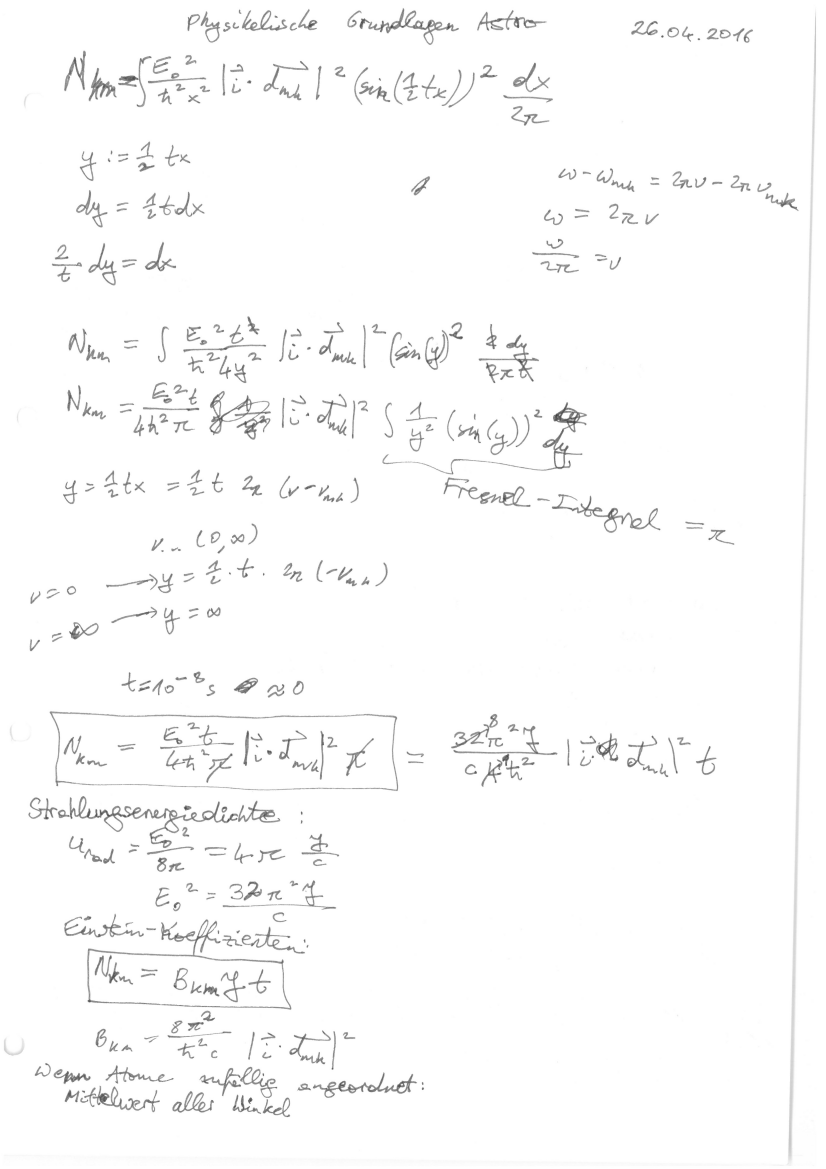 Physikalische Grundlagen Astro 26.04.2016
N_km = ∫ E₀²/(ħ²x²) |i⃗ · d⃗_mk|² (sin(½tx))² dx/2π
y := ½ tx
dy = ½ t dx
2/t dy = dx
ω - ω_mk = 2πν - 2πν_mk
ω = 2πν
ω/2π = ν
N_km = ∫ E₀²t²/(ħ²4y²) |i⃗ · d⃗_mk|² (sin(y))² 2 dy/(2πt)
N_km = E₀²t/(4ħ²π) |i⃗ · d⃗_mk|² ∫ 1/y² (sin(y))² dy
Fresnel-Integral = π
y = ½tx = ½ t 2π (ν - ν_mk)
ν... (0,∞)
ν = 0 → y = ½ · t · 2π (-ν_mk)
ν = ∞ → y = ∞
t = 10⁻⁸ s ≈ 0
N_km = E₀²t/(4ħ²π) |i⃗ · d⃗_mk|² π = 32π²J/(c 4ħ²) |i⃗ · d⃗_mk|² t
Strahlungsenergiedichte :
u_rad = E₀²/8π = 4π J/c
E₀² = 32π²J/c
Einstein-Koeffizienten:
N_km = B_km J t
B_km = 8π²/(ħ²c) |i⃗ · d⃗_mk|²
Wenn Atome zufällig angeordnet:
Mittelwert aller Winkel